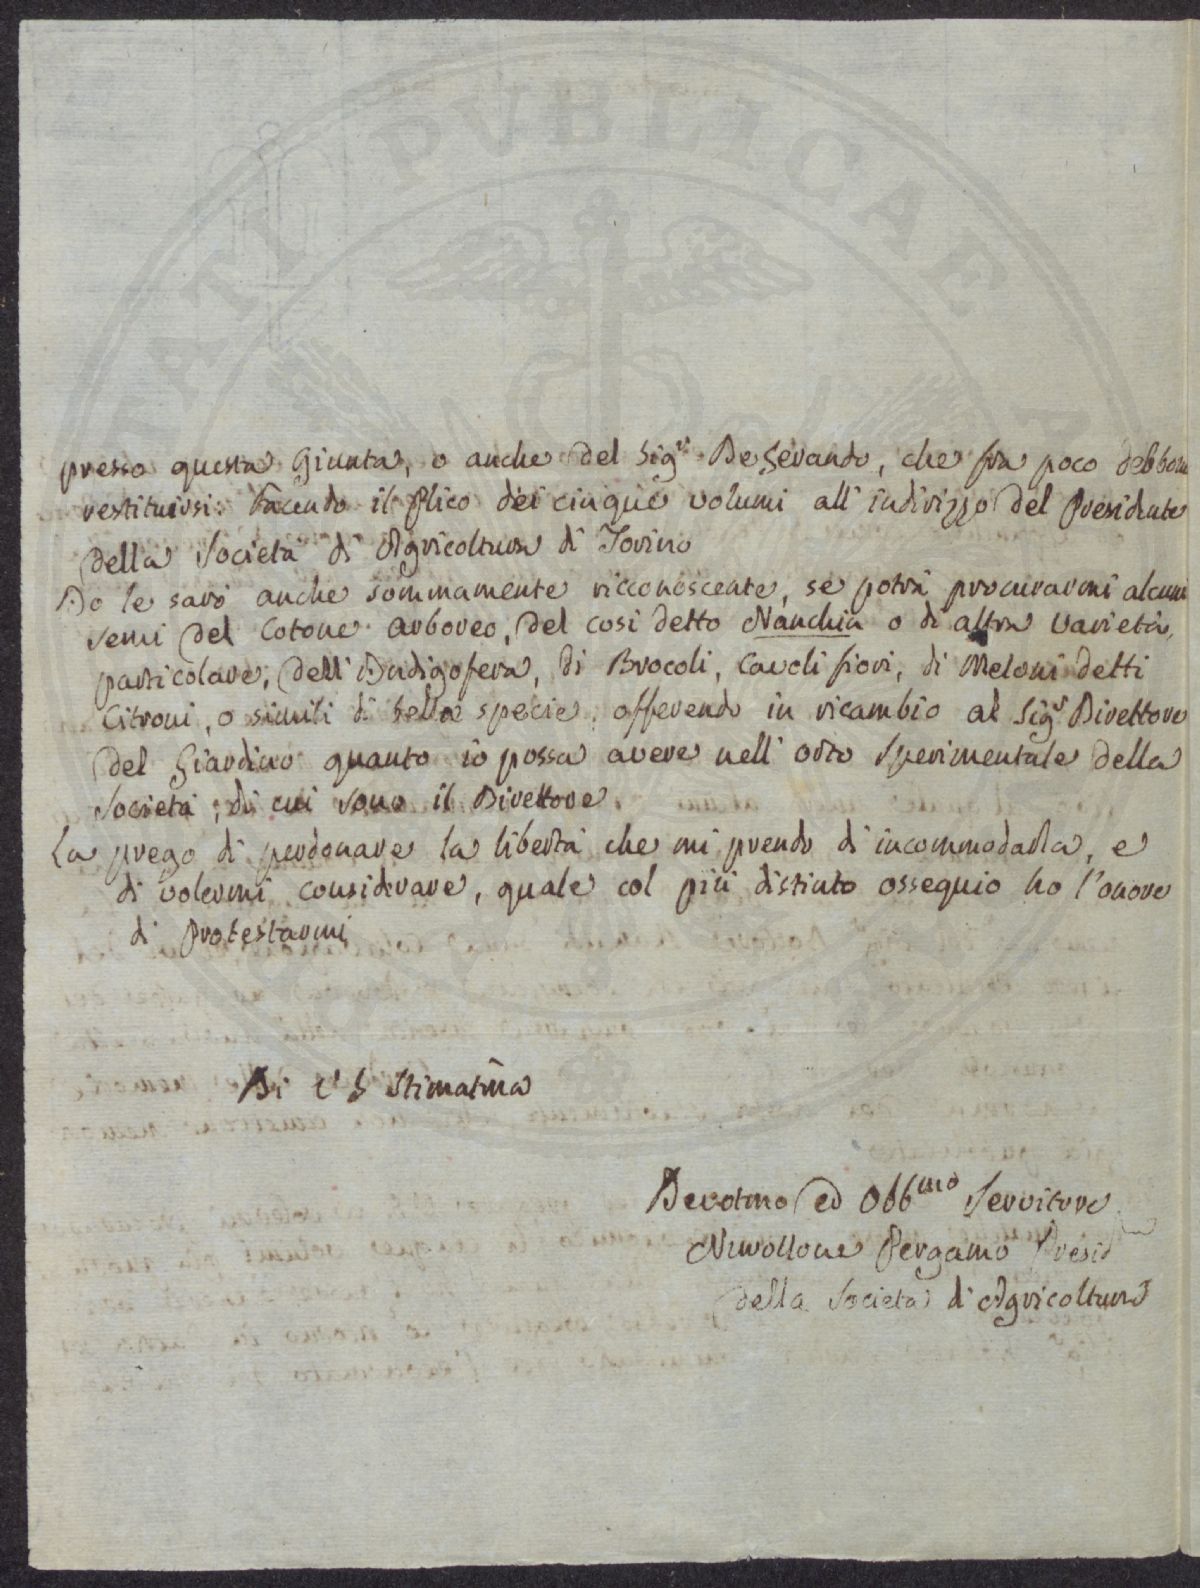 PUBLICAE
presso questa Giunta, o anche del Sig.r DeGerando, che fra poco debbon
restituirsi: Facendo il plico dei cinque volumi all'indirizzo del Presidente
della Società di Agricoltura di Torino
Io le sarò anche sommamente ricconoscente, se potrà procurarmi alcuni
semi del Cotone arboreo, del così detto Nanchin o di altra varietà
particolare, dell'Indigofera, di Brocoli, Cavoli fiori, di Meloni detti
Citroni, o simili di bella specie, offerendo in ricambio al Sig.r Direttore
del Giardino quanto io possa avere nell'orto Sperimentale della
Società, di cui sono il Direttore.
La prego di perdonare la libertà che mi prendo di incommodarla, e
di volermi considerare, quale col più distinto ossequio ho l'onore
di protestarmi
Di V S Stimatma
Devotmo ed Obbmo Servitore
Nuvollone Pergamo Presid
della Società di Agricoltura